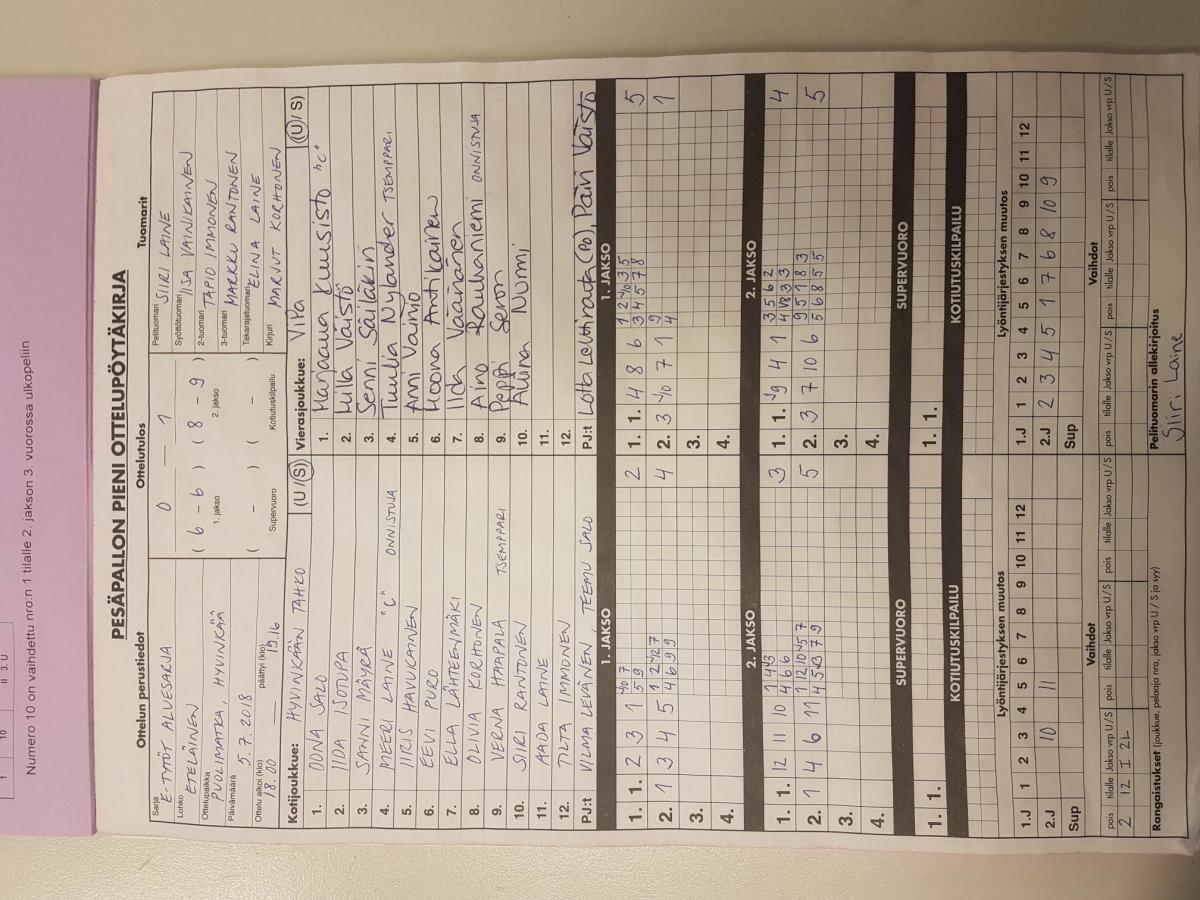 1 10 II 3. U
Numero 10 on vaihdettu nro:n 1 tilalle 2. jakson 3. vuorossa ulkopeliin
PESÄPALLON PIENI OTTELUPÖYTÄKIRJA
Ottelun perustiedot Ottelutulos Tuomarit
Sarja E-TYTÖT ALUESARJA
Lohko ETELÄINEN
Ottelupaikka PUOLIMATKA, HYVINKÄÄ
Päivämäärä 5.7.2018
Ottelu alkoi (klo) 18.00 päättyi (klo) 19.16
0 — 1
( 6 - 6 ) ( 8 - 9 )
1. jakso 2. jakso
( - ) ( - )
Supervuoro Kotiutuskilpailu
Pelituomari SIIRI LAINE
Syöttötuomari IISA VAINIKAINEN
2-tuomari TAPIO IMMONEN
3-tuomari MARKKU RANTONEN
Takarajatuomari ELINA LAINE
Kirjuri MARJUT KORHONEN
Kotijoukkue: HYVINKÄÄN TAHKO (U / S)
1. OONA SALO
2. IIDA ISOTUPA
3. SANNI MÄYRÄ
4. MEERI LAINE "C" ONNISTUJA
5. IIRIS HAVUKAINEN
6. EEVI PURO
7. ELLA LÄHTEENMÄKI
8. OLIVIA KORHONEN
9. VERNA HAAPALA TSEMPPARI
10. SIIRI RANTONEN
11. AADA LAINE
12. TILTA IMMONEN
PJ:t VILMA LEVÄNEN, TEEMU SALO
Vierasjoukkue: ViPa (U / S)
1. Marjaana Kuusisto "C"
2. Lilla Väistö
3. Senni Säiläkin
4. Tuulia Nylander TSEMPPARI
5. Anni Vainio
6. Noona Antikainen
7. Iida Väänänen
8. Aino Rauhaniemi ONNISTUJA
9. Peppi Seron
10. Aliina Nurmi
11.
12.
PJ:t Lotta Lohiranta (PO), Päivi Väistö
1. JAKSO 1. JAKSO
1. 1. 2 3 1 2
2. 1 3 4 5 4
3.
4.
1. 1. 4 8 6 5
2. 3 10 7 1 1
3.
4.
2. JAKSO 2. JAKSO
1. 1. 12 11 10 3
2. 1 4 6 11 5
3.
4.
1. 1. 9 4 1 4
2. 3 7 10 6 5
3.
4.
SUPERVUORO SUPERVUORO
1. 1. 1. 1.
KOTIUTUSKILPAILU KOTIUTUSKILPAILU
Lyöntijärjestyksen muutos Lyöntijärjestyksen muutos
1.J 1 2 3 4 5 6 7 8 9 10 11 12 1.J 1 2 3 4 5 6 7 8 9 10 11 12
2.J 10 11 2.J 2 3 4 5 1 7 6 8 10 9
Sup Sup
Vaihdot Vaihdot
pois tilalle Jakso vrp U / S pois tilalle Jakso vrp U / S pois tilalle Jakso vrp U / S pois tilalle Jakso vrp U / S pois tilalle Jakso vrp U / S pois tilalle Jakso vrp U / S
2 12 I 2L
Rangaistukset (joukkue, pelaaja nro, jakso vrp U / S ja syy)
Pelituomarin allekirjoitus
Siiri Laine